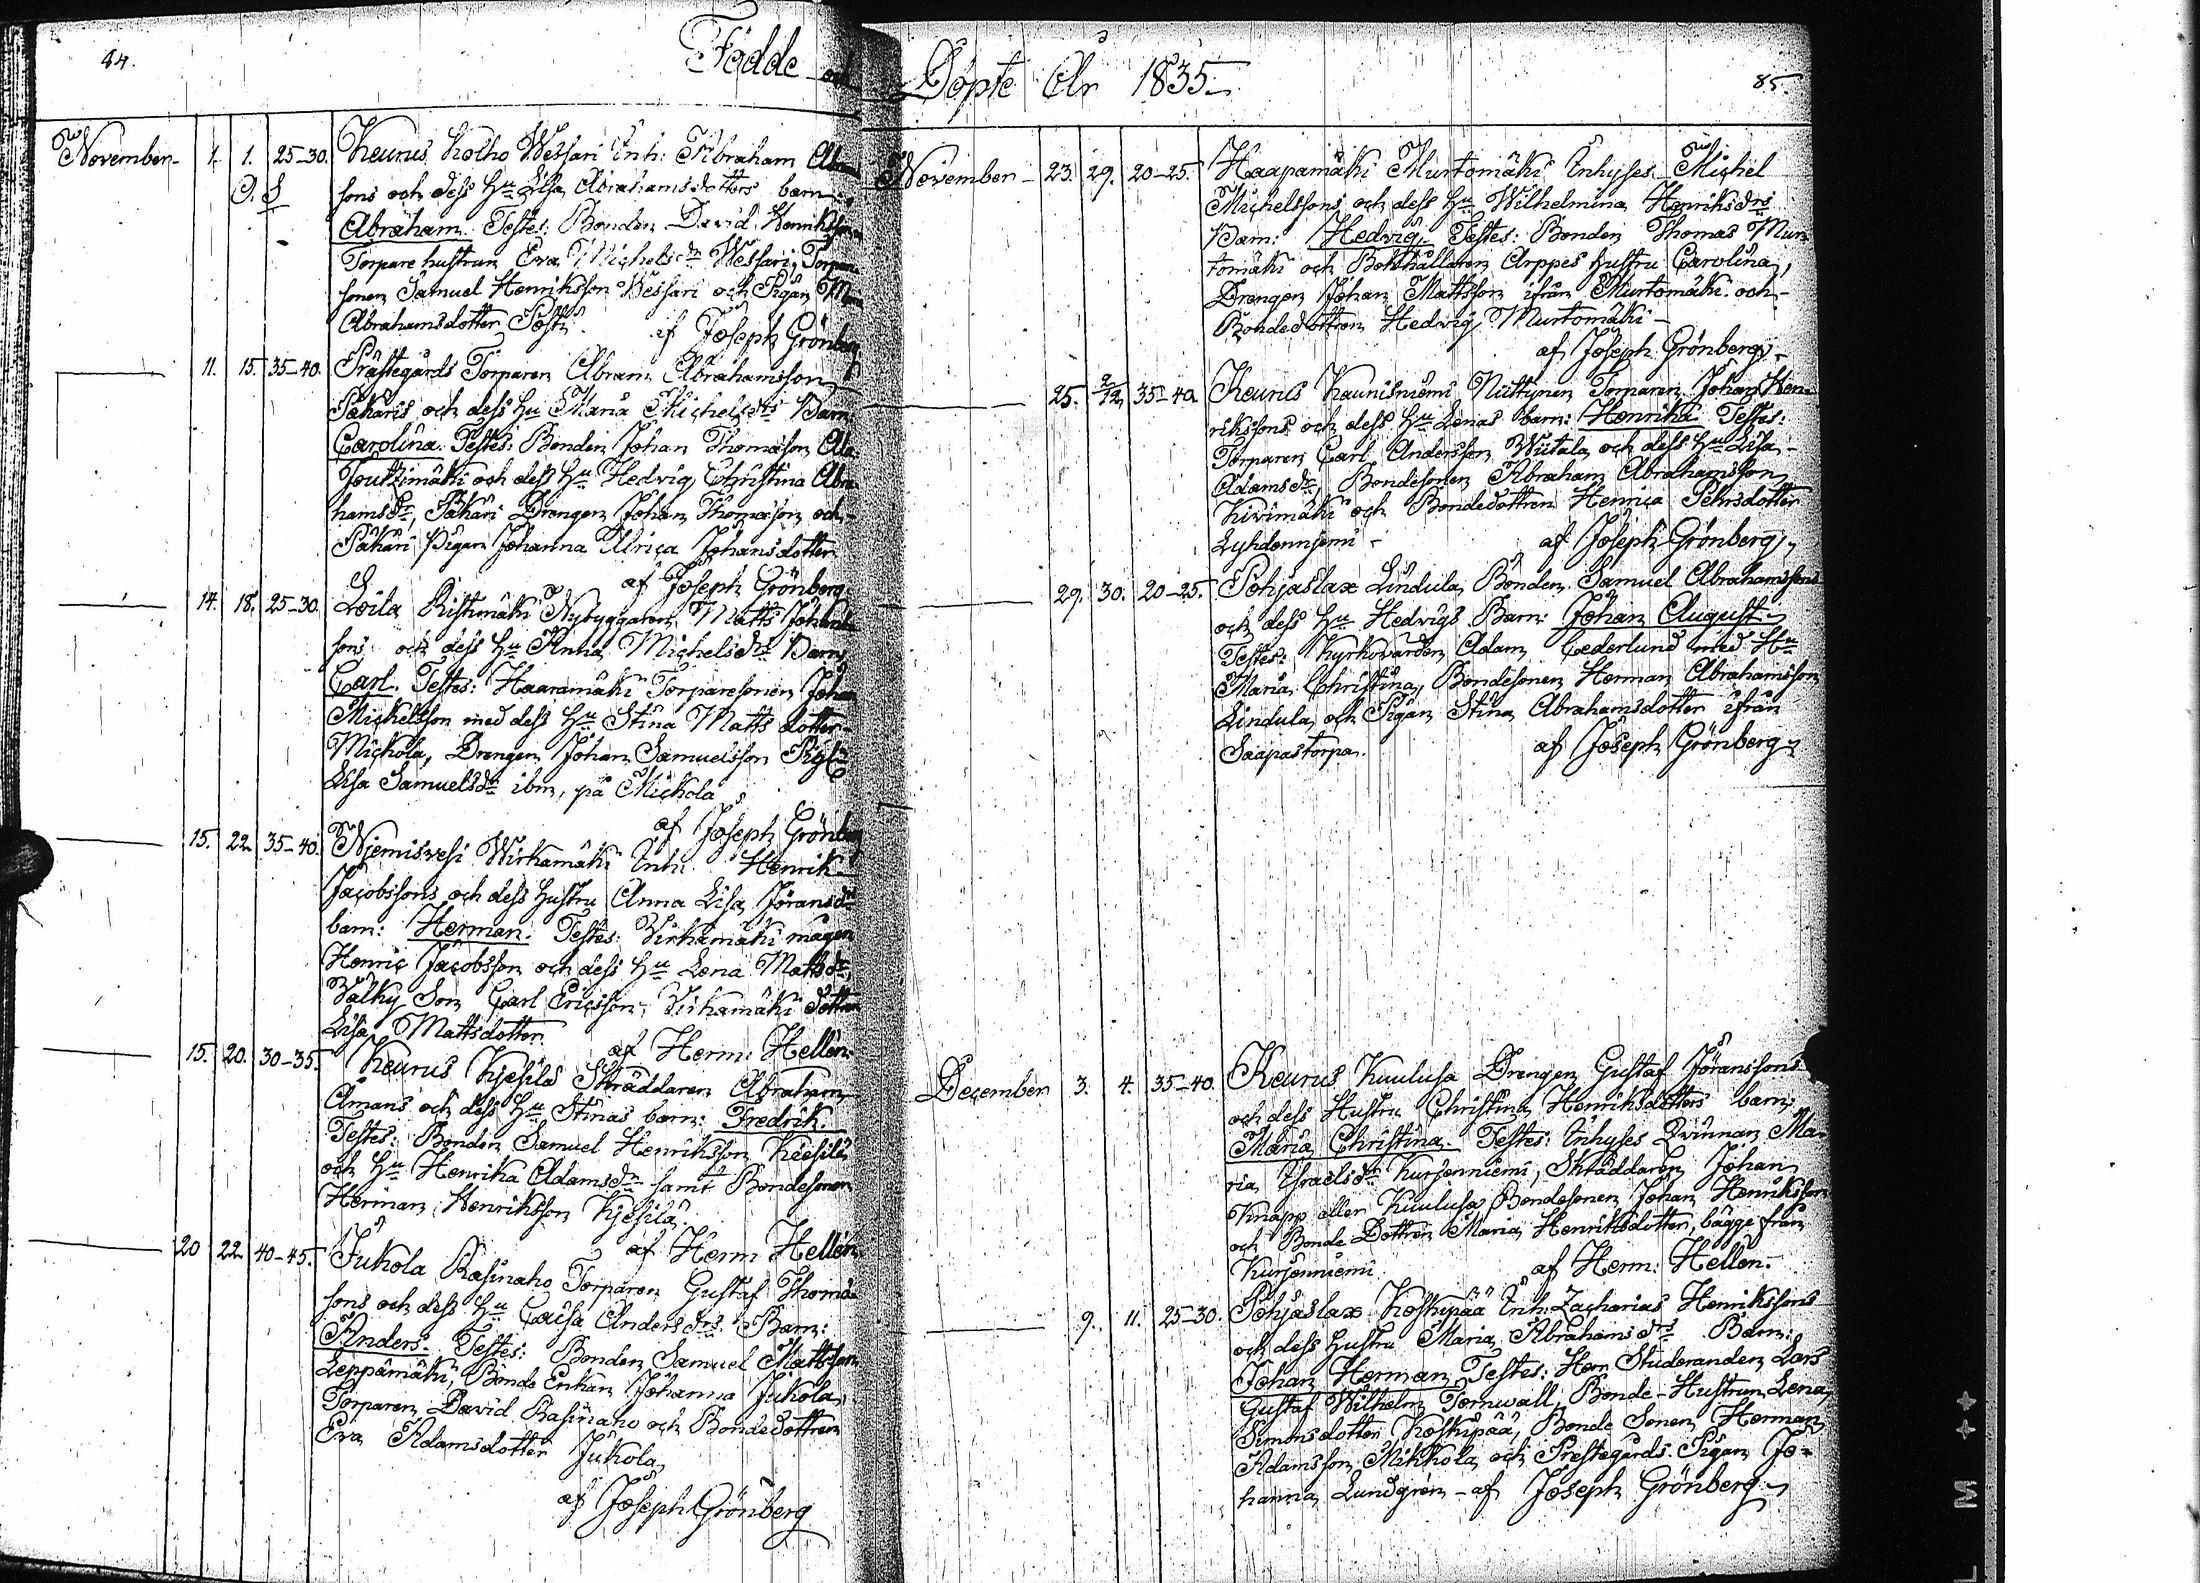 84.
Födde och
November 1. 1. 25-30. Keurus Kolho Wessari Inh: Abraham Abra
D. S. sons och dess Hu Lisa Abrahamsdotters barn:
Abraham. Testes: Bonden David Henriksson
Torpare hustrun Eva Michelsdr Wessari, Torpare
sonen Samuel Henriksson Wessari och Pigan
Abrahamsdotter Poshi
af Joseph Grönberg
11. 15. 35-40. Prästegårds Torparen Abram Abrahamsson
Pakaris och dess Hu Maria Michelsdrs Barn
Carolina. Testes: Bonden Johan Thomasson Ala
Joutzimäki och dess Hu Hedvig Christina Abra
hamsdr, Pakari Drengen Johan Thomasson och
Pakari Pigan Johanna Ulrica Johansdotter
af Joseph Grönberg
14. 18. 25-30. Loila Ristimäki Nybyggaren Matts Johans
sons och dess Hu Anna Michelsdrs Barn
Carl. Testes: Haaramäki Torparesonen Johan
Michelsson med dess Hu Stina Mattsdotter
Mickola, Drengen Johan Samuelsson
Lisa Samuelsdr ibm, på Mickola
af Joseph Grönberg
15. 22. 35-40. Njemisvesi Wirkamäki Inh: Henrik
Jacobssons och dess hustru Anna Lisa Jöransdrs
barn: Herman. Testes: Virkamäki mågen
Henric Jacobsson och dess Hu Lena Mattsdr,
Välky Son Carl Ericsson, Virkamäki dottren
Lisa Mattsdotter
af Herm: Hellén
15. 20. 30-35. Keurus Kjesilä Skräddaren Abraham
Åmans och dess Hu Stinas barn: Fredrik.
Testes: Bonden Samuel Henriksson Kiesilä
och Hu Henrika Adamsdr samt Bondesonen
Herman Henriksson Kjesilä.
af Herm Hellén
20 22 40-45. Jukola Rasinaho Torparen Gustaf Thomas
sons och dess Hu Caisa Andersdrs Barn:
Anders. Testes: Bonden Samuel Mattsson
Leppämäki, Bonde Enkan Johanna Jukola,
Torparen David Rasinaho och Bondedottren
Eva Adamsdotter Jukola
af Joseph Grönberg
Döpte År 1835
85.
November 23. 29. 20-25. Haapamäki Murtomäki Inhyses Michel
Michelssons och dess Hu Wilhelmina Henriksdrs
Barn: Hedvig. Testes: Bonden Thomas Mur
tomäki och Bokhållaren Arppes hustru Carolina,
Drengen Johan Mattsson ifrån Murtomäki och
Bondedottren Hedvig Murtomäki
af Joseph Grönberg
25. 2/12 35-40. Keurus Kaunisniemi Niittynen Torparen Johan Hen
rikssons och dess Hu Lenas barn: Henriki Testes:
Torparen Carl Andersson Wiitala och dess Hu Lisa
Adamsdr, Bondesonen Abraham Abrahamsson
Kivimäki och Bondedottren Henrica Pehrsdotter
af Joseph Grönberg
29. 30. 20-25. Pohjaslax Lindula Bonden Samuel Abrahamssons
och dess Hu Hedvigs Barn: Johan August
Testes: Kyrkovärden Adam Cederlund med Hu
Maria Christina, Bondesonen Herman Abrahamsson
Lindula och Pigan Stina Abrahamsdotter ifrån
Saapastorpa. af Joseph Grönberg
December 3. 4. 35-40. Keurus Kuulusa Drengen Gustaf Jöranssons
och dess Hustru Christina Henriksdotters barn
Maria Christina. Testes: Inhyses Qvinnan Ma
ria Israelsdr Kurjenniemi, Skräddaren Johan
Knapp eller Kuulusa Bondesonen Johan Henriksson
och Bonde Dottren Maria Henriksdotter, bägge från
Kurjenniemi af Herm: Hellén.
9. 11. 25-30. Pohjaslax Koskipää Inh: Zacharias Henrikssons
och dess hustru Maria Abrahamsdrs Barn:
Johan Herman Testes: Herr Studeranden Lars
Gustaf Wilhelm Törnwall, Bonde-Hustrun Lena
Simonsdotter Koskipää, Bonde Sonen Herman
Adamsson Mikkola och Prestegårds Pigan Jo=
hanna Lundgrén af Joseph Grönberg